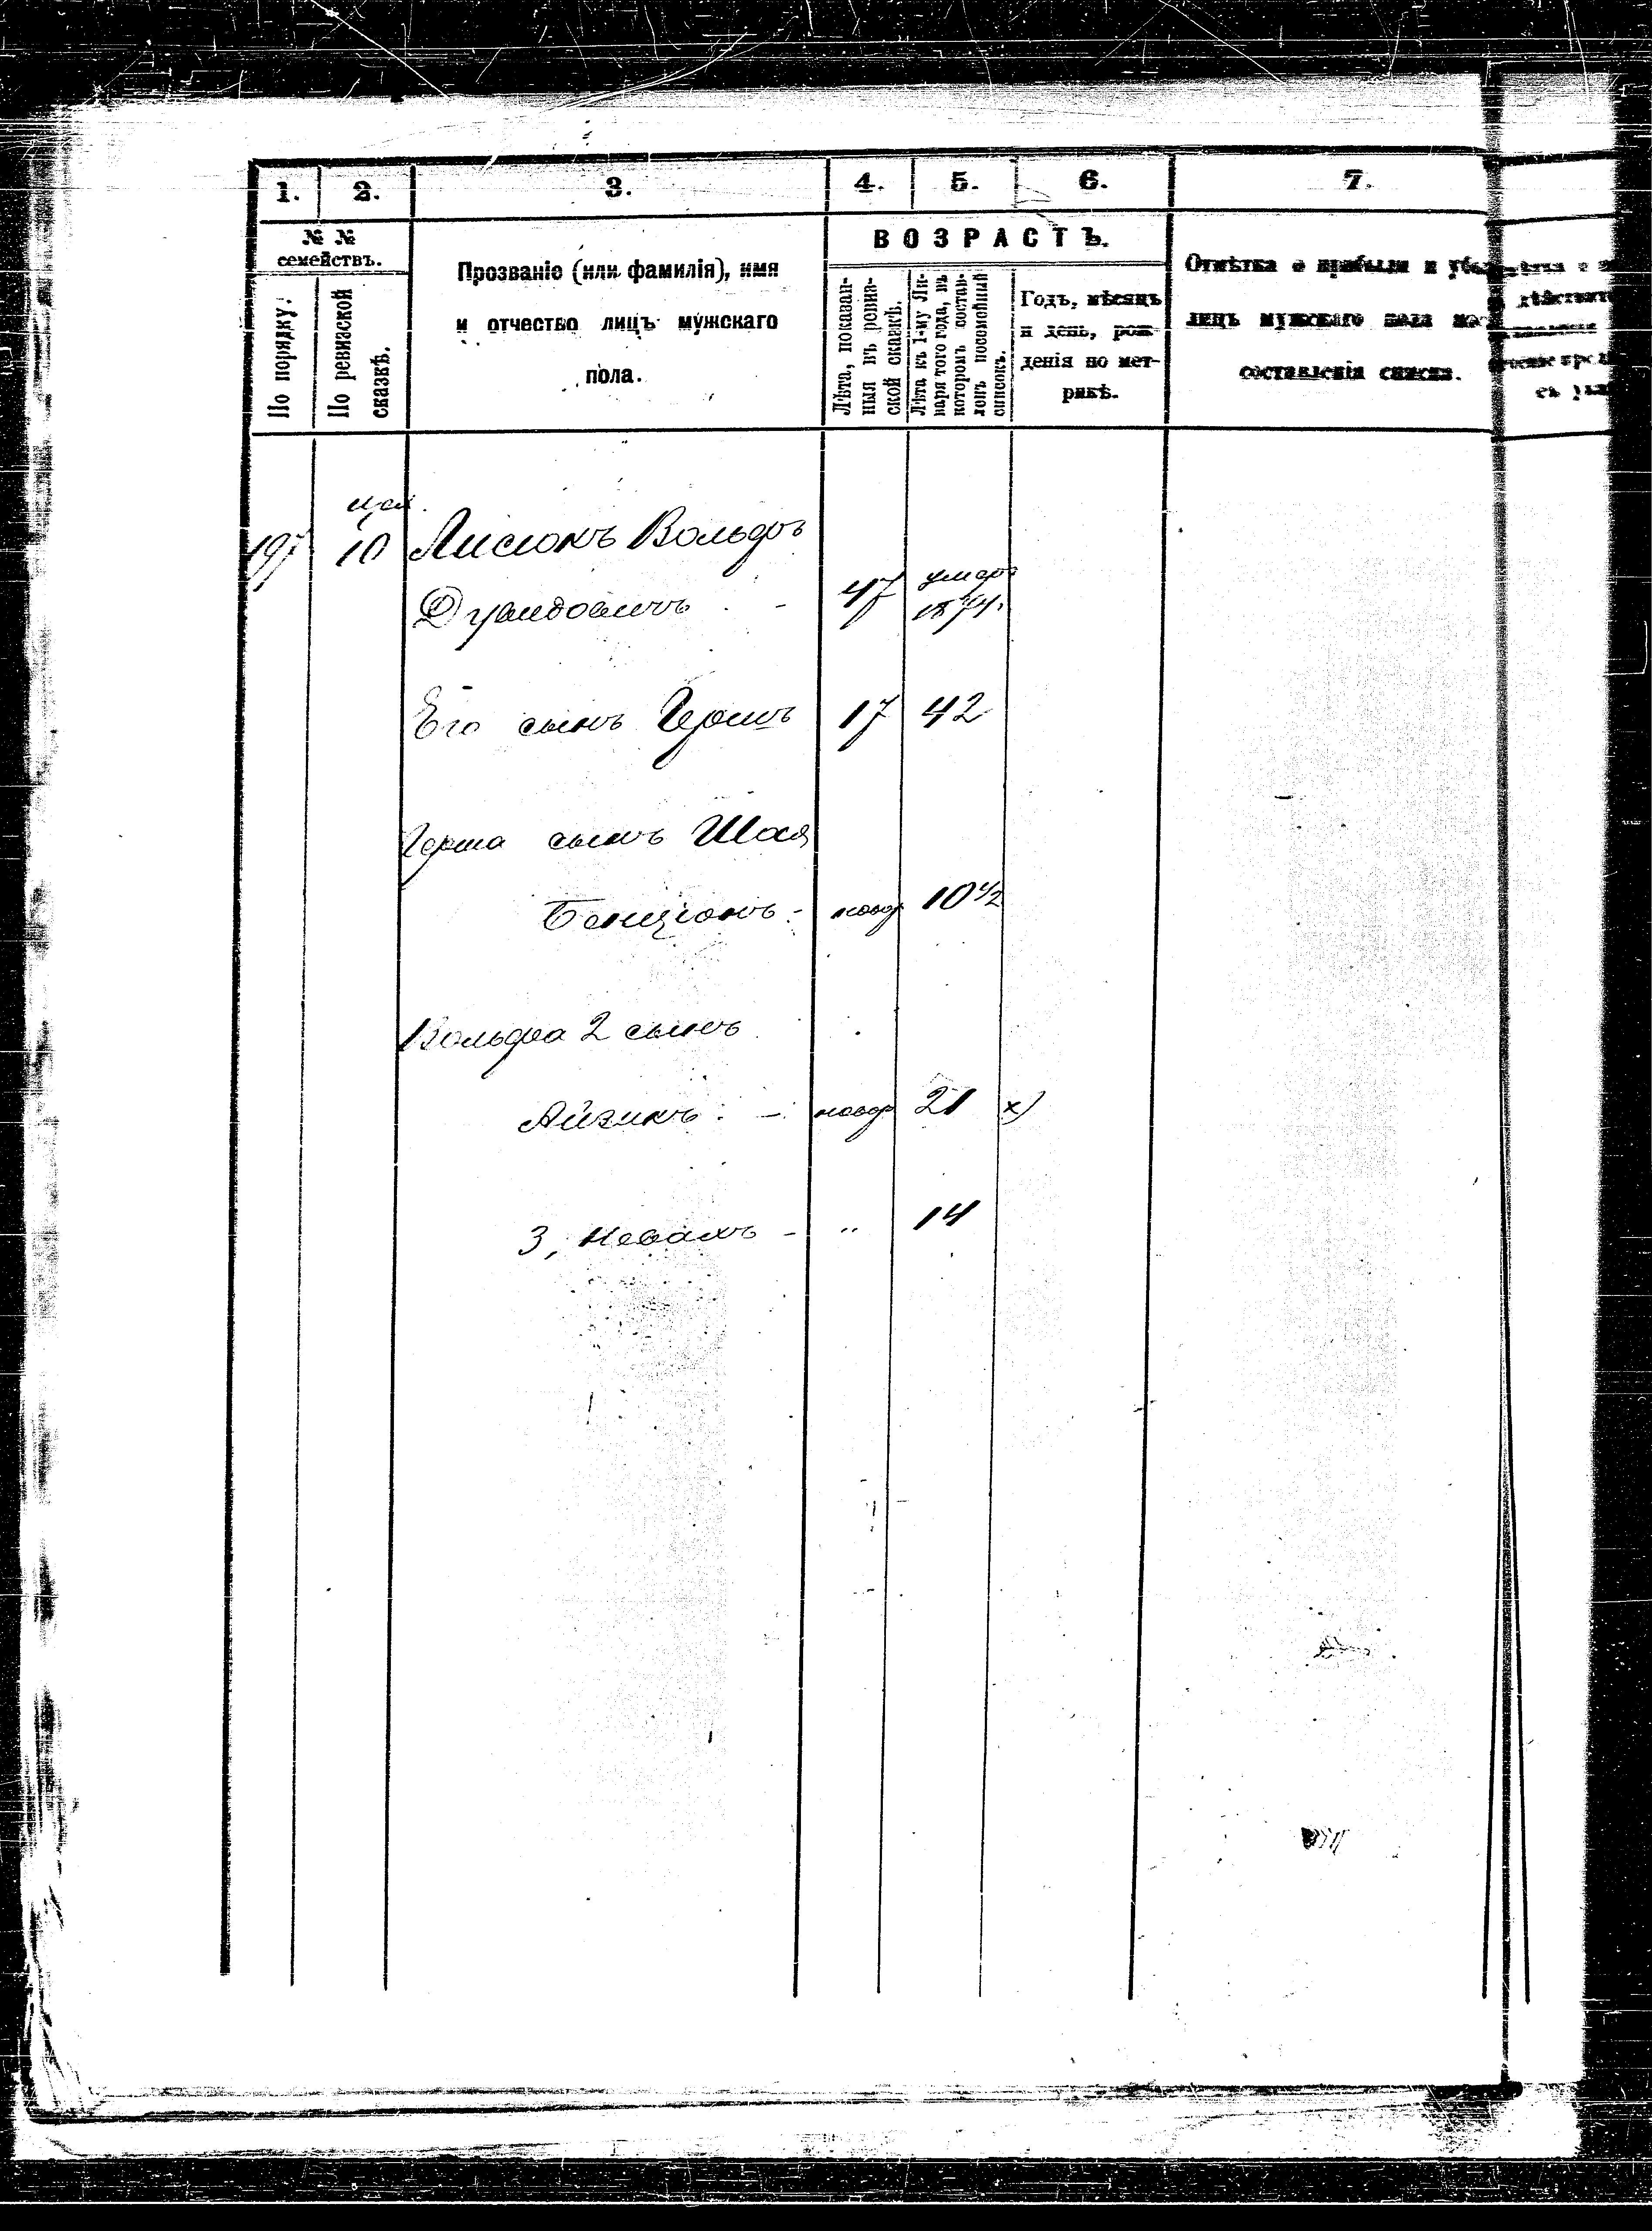 1. 2. 3. 4. 5. 6. 7.
№ №
семействъ.
По порядку.
По ревизской
сказкѣ.
Прозваніе (или фамилія), имя
и отчество лицъ мужскаго
пола.
ВОЗРАСТЪ.
Лѣта, показан-
ныя въ ревиз-
ской сказкѣ.
Лѣта къ 1-му Ян-
варя того года, въ
которомъ состав-
ленъ посемейный
списокъ.
Годъ, мѣсяцъ
и день, рож-
денія по мет-
рикѣ.
Отмѣтка о прибыли и
лицъ мужскаго пола
составленія списка.
197 10 Лисюкъ Вольфъ
47 умеръ
1874.
Его сынъ Гершъ 17 42
Герша сынъ Шая
Бенціонъ - новор 10 1/2
Вольфа 2 сынъ
Айзикъ - новор 21 х)
3, - " 14